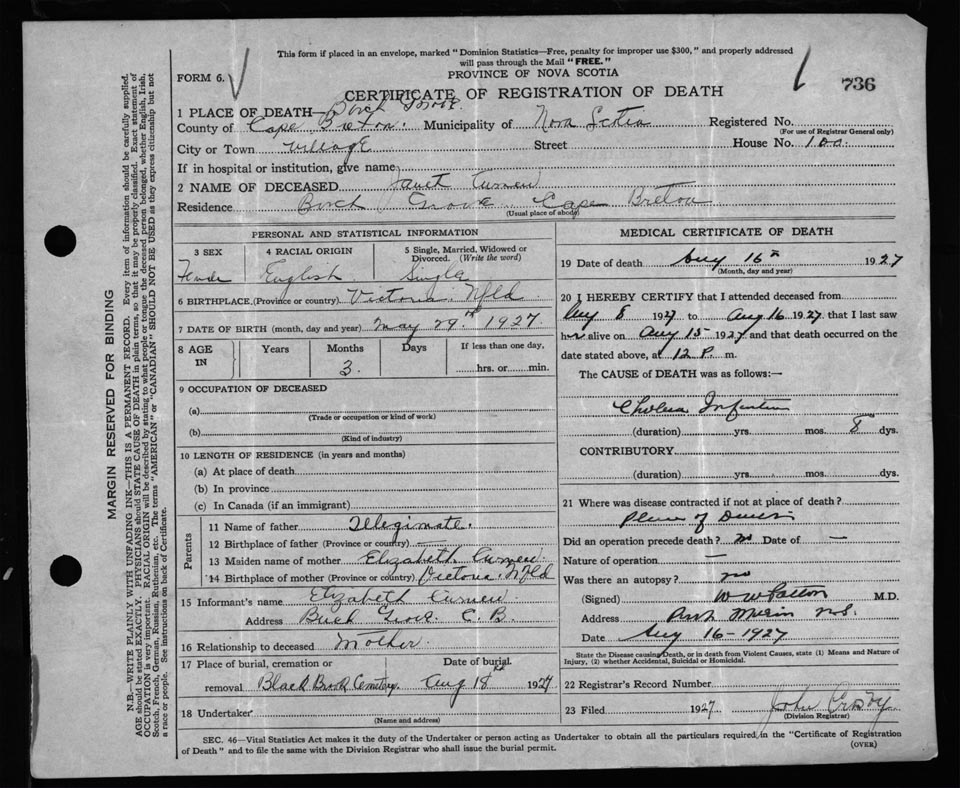 This form if placed in an envelope, marked "Dominion Statistics—Free, penalty for improper use $300," and properly addressed
will pass through the Mail "FREE."
FORM 6.
PROVINCE OF NOVA SCOTIA
736
CERTIFICATE OF REGISTRATION OF DEATH
1 PLACE OF DEATH— Birch Grove.
County of Cape Breton. Municipality of Nova Scotia Registered No.
(For use of Registrar General only)
City or Town Village Street House No. 100.
If in hospital or institution, give name
2 NAME OF DECEASED Janet Curnew
Residence Birch Grove Cape Breton
(Usual place of abode)
PERSONAL AND STATISTICAL INFORMATION
3 SEX 4 RACIAL ORIGIN 5 Single, Married, Widowed or
Divorced. (Write the word)
Female English Single
6 BIRTHPLACE (Province or country) Victoria. Nfld.
7 DATE OF BIRTH (month, day and year) May 29th 1927.
8 AGE
IN
Years Months Days If less than one day,
3. hrs. or min.
9 OCCUPATION OF DECEASED
(a)
(Trade or occupation or kind of work)
(b)
(Kind of industry)
10 LENGTH OF RESIDENCE (in years and months)
(a) At place of death
(b) In province
(c) In Canada (if an immigrant)
Parents
11 Name of father Illegimate.
12 Birthplace of father (Province or country) —
13 Maiden name of mother Elizabeth Curnew
14 Birthplace of mother (Province or country) Victoria. Nfld
15 Informant's name Elizabeth Curnew
Address Birch Grove. C. B.
16 Relationship to deceased Mother.
17 Place of burial, cremation or Date of burial
removal Black Brook Cemetery. Aug 18 1927
18 Undertaker
(Name and address)
MEDICAL CERTIFICATE OF DEATH
19 Date of death Aug 16th 1927
(Month, day and year)
20 I HEREBY CERTIFY that I attended deceased from
Aug 8 1927 to Aug 16 1927 that I last saw
her alive on Aug 15 1927 and that death occurred on the
date stated above, at 12 P. m.
The CAUSE of DEATH was as follows:—
Cholera Infantum
(duration) yrs. mos. 8 dys.
CONTRIBUTORY
(duration) yrs. mos. dys.
21 Where was disease contracted if not at place of death?
Place of
Did an operation precede death? no Date of —
Nature of operation —
Was there an autopsy? no
(Signed) W W Patton M.D.
Address Port Morien N.S.
Date Aug 16 - 1927
State the Disease causing Death, or in death from Violent Causes, state (1) Means and Nature of
Injury, (2) whether Accidental, Suicidal or Homicidal.
22 Registrar's Record Number
23 Filed 1927 John
(Division Registrar)
SEC. 46—Vital Statistics Act makes it the duty of the Undertaker or person acting as Undertaker to obtain all the particulars required in the "Certificate of Registration
of Death" and to file the same with the Division Registrar who shall issue the burial permit.
(OVER)
MARGIN RESERVED FOR BINDING
N.B.—WRITE PLAINLY WITH UNFADING INK—THIS IS A PERMANENT RECORD. Every item of information should be carefully supplied.
AGE should be stated EXACTLY. PHYSICIANS should STATE CAUSE OF DEATH in plain terms, so that it may be properly classified. Exact statement of
OCCUPATION is very important. RACIAL ORIGIN will be described by stating to what people or tongue the deceased person belonged, whether English, Irish,
Scotch, French, German, Russian, Ruthenian, etc. The terms "AMERICAN" or "CANADIAN" SHOULD NOT BE USED as they express citizenship but not
a race or people. See instructions on back of Certificate.